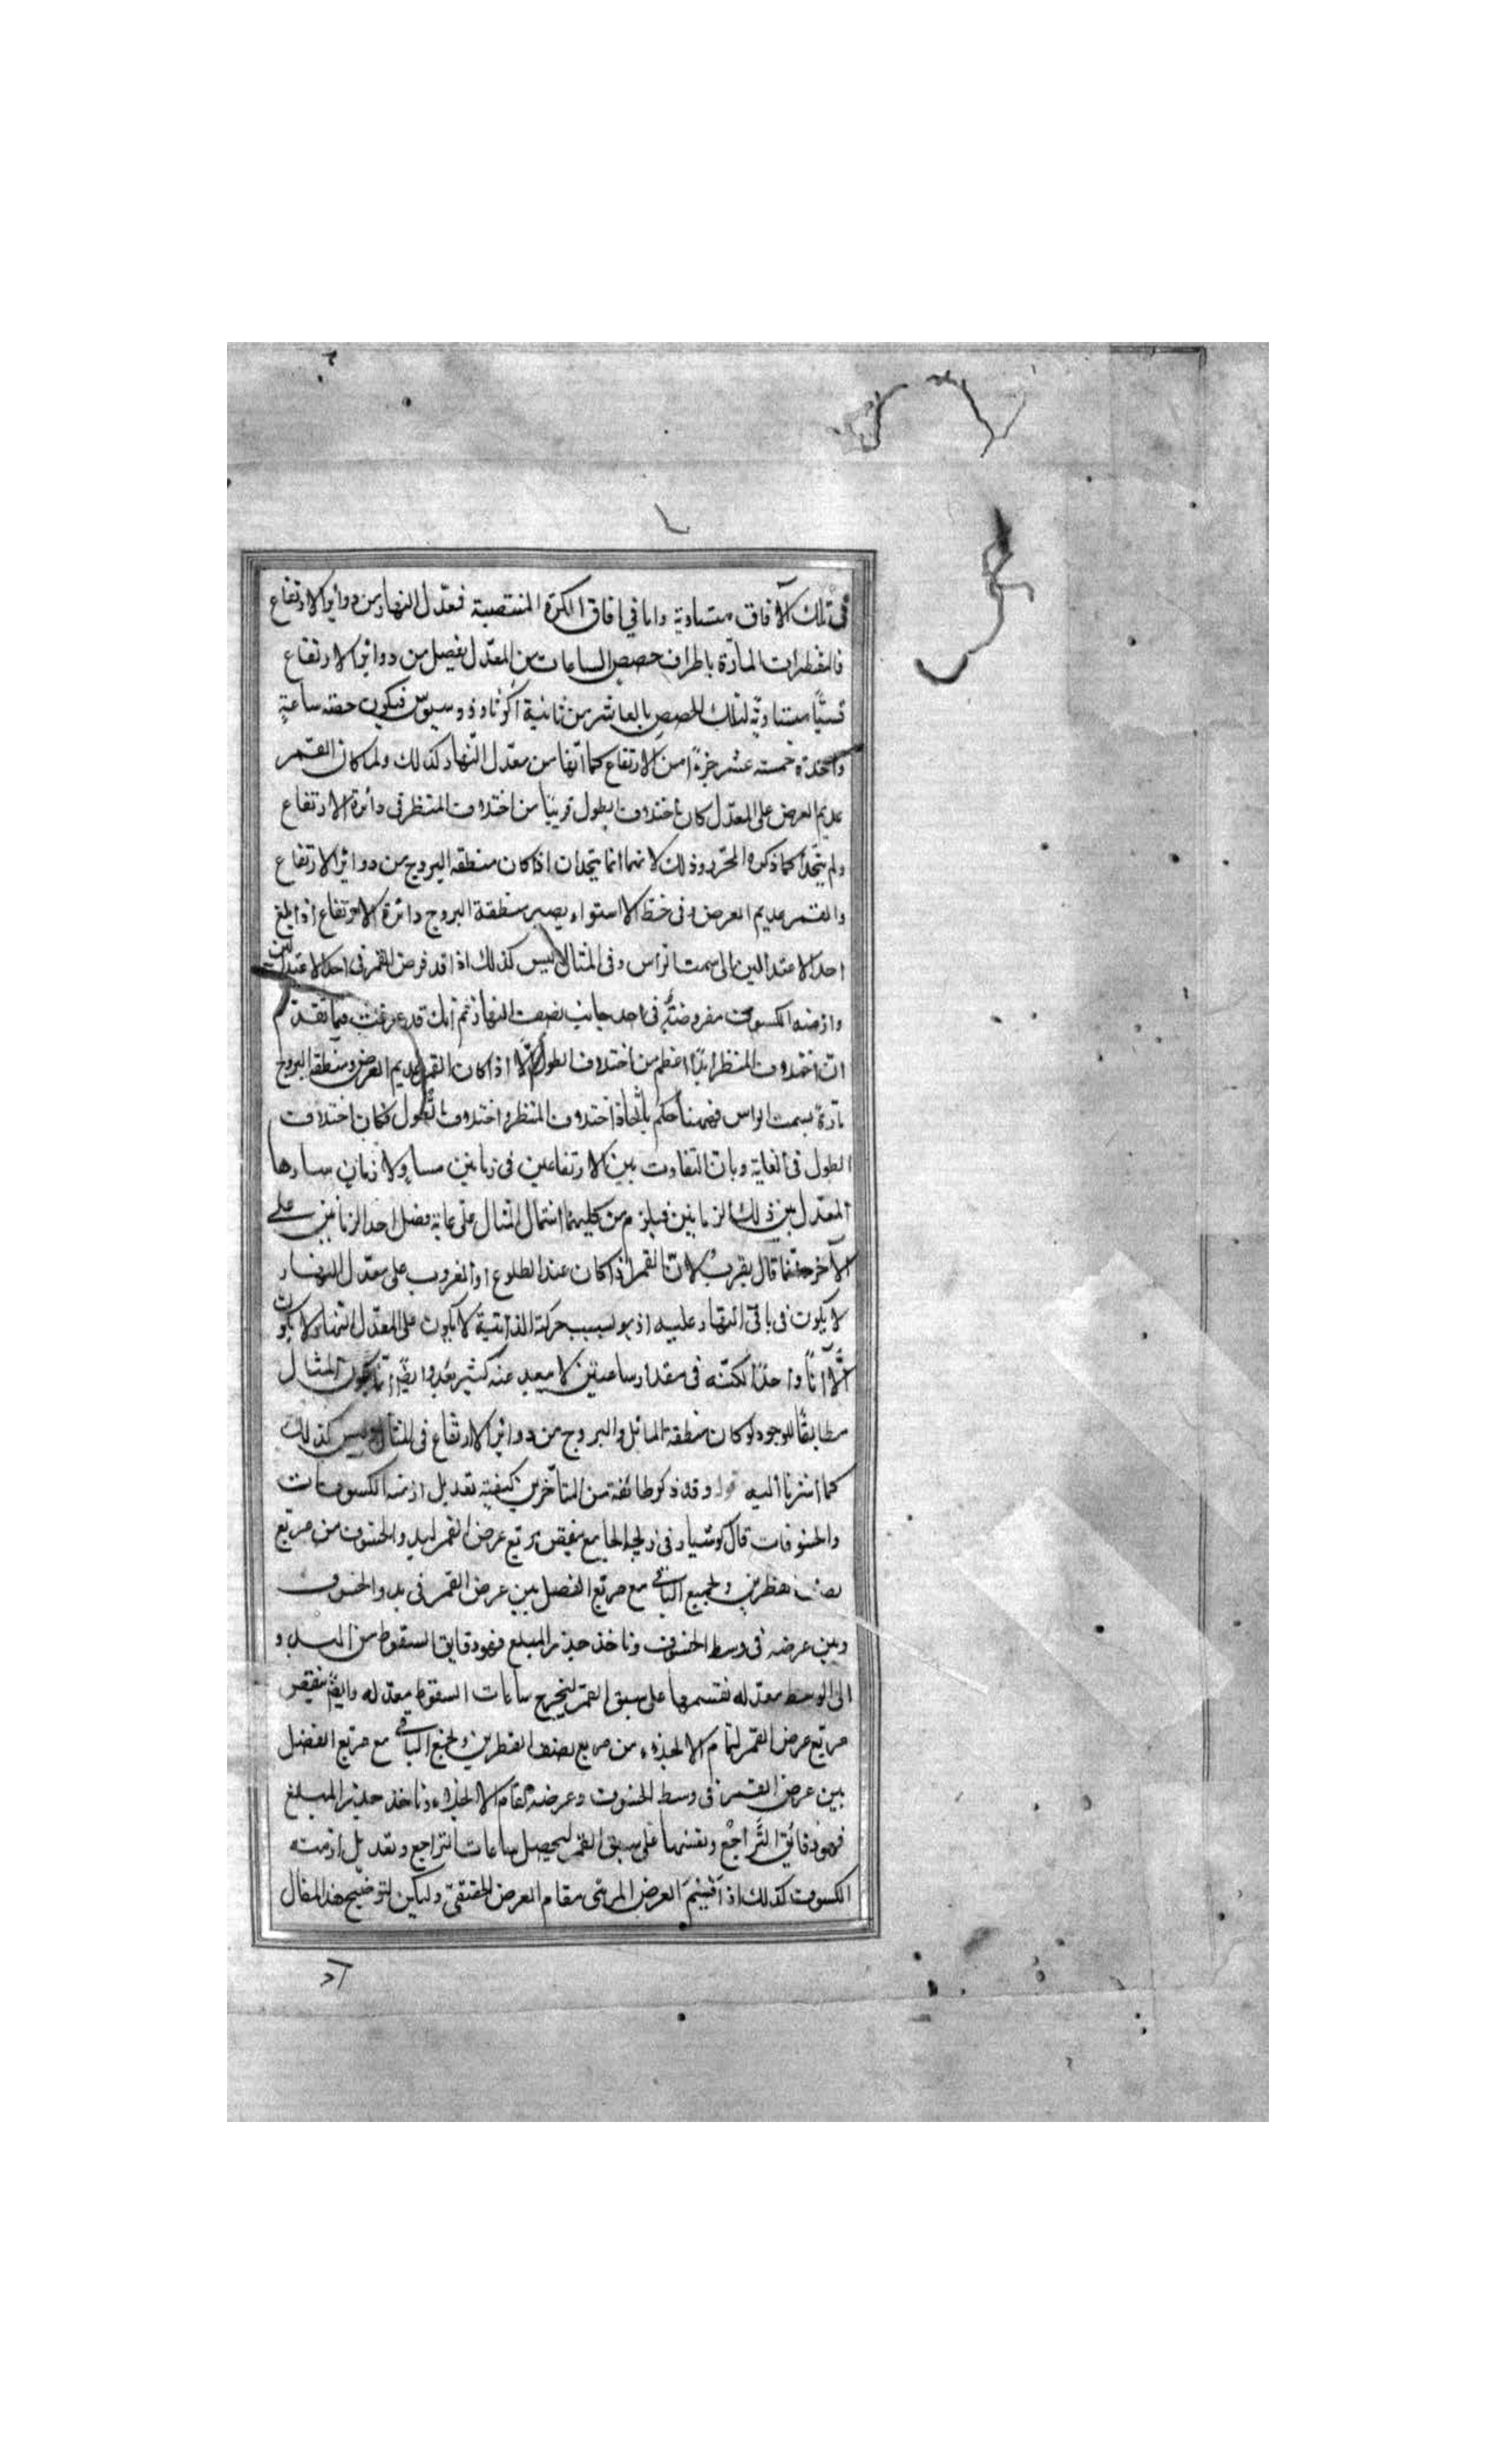 فى تلك الآفاق متساوية واما في افاق الكرة المنتصبة فمعدل النهار من دوائر الارتفاع
فالمقنطرات المارّة باطراف حصص الساعات من المعدّل يفصل من دوائر الارتفاع
قسيًّا متساويةً لتلك الحصص بالعاشر من ثانية اكوثاوذوسيوس فيكون حصّه ساعةٍ
واحدة خمسته عشر جزءًا من الارتفاع كما انّها من معدّل النّهار كذلك ولما كان القمر
عديم العرض على المعدّل كان اختلاف الطول قريبًا من اختلاف المنظر فى دائرة الارتفاع
ولم يتّحدا كما ذكره المحرّر وذلك لانهما انما يتّحدان اذا كان منطقه البروج من دوائر الارتفاع
والقمر عديم العرض وفى خطّ الاستواء يصير منطقة البروج دائرة الارتفاع اذا بلغ
احد الاعتدالين الى سمت الراس وفى المثال ليس كذلك اذ قد فرض القمر فى احد الاعتدالين
وازمنه الكسوف مفروضةٌ فى احد جانب نصف النهار ثم انك قد عرفت فيما تقدّم
انّ اختلاف المنظر ابدًا اعظم من اختلاف الطول الّا اذا كان القمر عديم العرض ومنطقه البروج
مارّة بسمت الراس فههنا حكم باتّحاد اختلاف المنظر واختلاف الطول فكان اختلاف
الطول فى الغاية وبان التفاوت بين الارتفاعين فى زمانين مساوٍ لازمان سارها
المعدّل بين ذلك الزمانين فيلزم من كليهما اشتمال المثال على غاية فضل احد الزمانين على
الآخر حقّقنا قال بقربٍ لانّ القمر اذا كان عند الطلوع او الغروب على معدّل النهار
لا يكون فى باقى النهار عليه اذ هو بسبب حركة الذاتية لا يكون على المعدّل النهار لا يكون
الّا آنًا واحدًا لكنّه فى مقدار ساعتين لا يبعد عنه كثير بعد وايضًا انّما يكون المثال
مطابقًا للوجود لو كان منطقه المائل والبروج من دوائر الارتفاع فى المثال وليس كذلك
كما اشرنا اليه قوله وقد ذكر طائفة من المتأخّرين كيفيّة تعديل ازمنه الكسوفات
والخسوفات قال كوشيار فى زيجه الجامع ينقص مربّع عرض القمر لبدو الخسوف من مربّع
نصف القطرين ونجمع الباقى مع مربّع الفضل بين عرض القمر فى بدو الخسوف
وبين عرضه فى وسط الخسوف وناخذ جذر المبلغ فهو دقايق السقوط من البدو
الى الوسط معدّله نقسمها على سبق القمر ليخرج ساعات السقوط معدّله وايضًا ينقص
مربّع عرض القمر لتمام الانجلاء من مربع نصف القطرين ونجمع الباقى مع مربّع الفضل
بين عرض القمر فى وسط الخسوف وعرضه لتمام الانجلاء وناخذ جذر المبلغ
فهو دقائق التّراجع ونقسمها على سبق القمر ليحصل ساعات التراجع وتعديل ازمنه
الكسوف كذلك اذ اقيم العرض المرئى مقام العرض الحقيقىّ وليكن لتوضيح هذا المقال